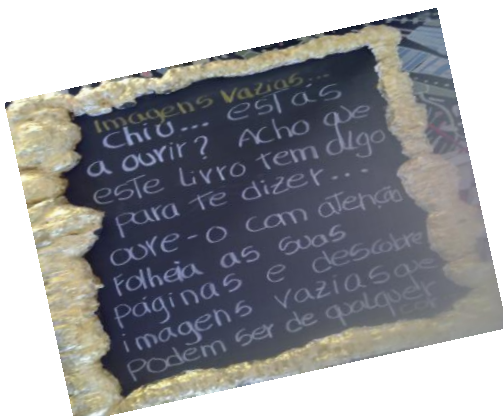 imagens vazias...
Chiu... estás
a ouvir? Acho que
este livro tem algo
para te dizer...
ouve-o com atenção
Folheia as suas
páginas e descobre
imagens vazias que
Podem ser de qualquer
cor